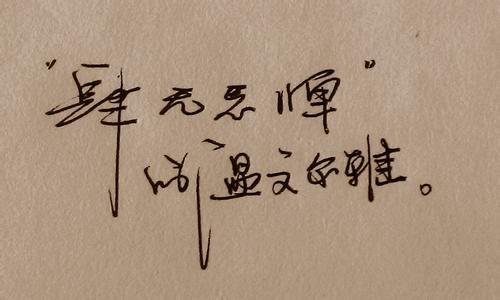 “肆无忌惮”
的温文尔雅。